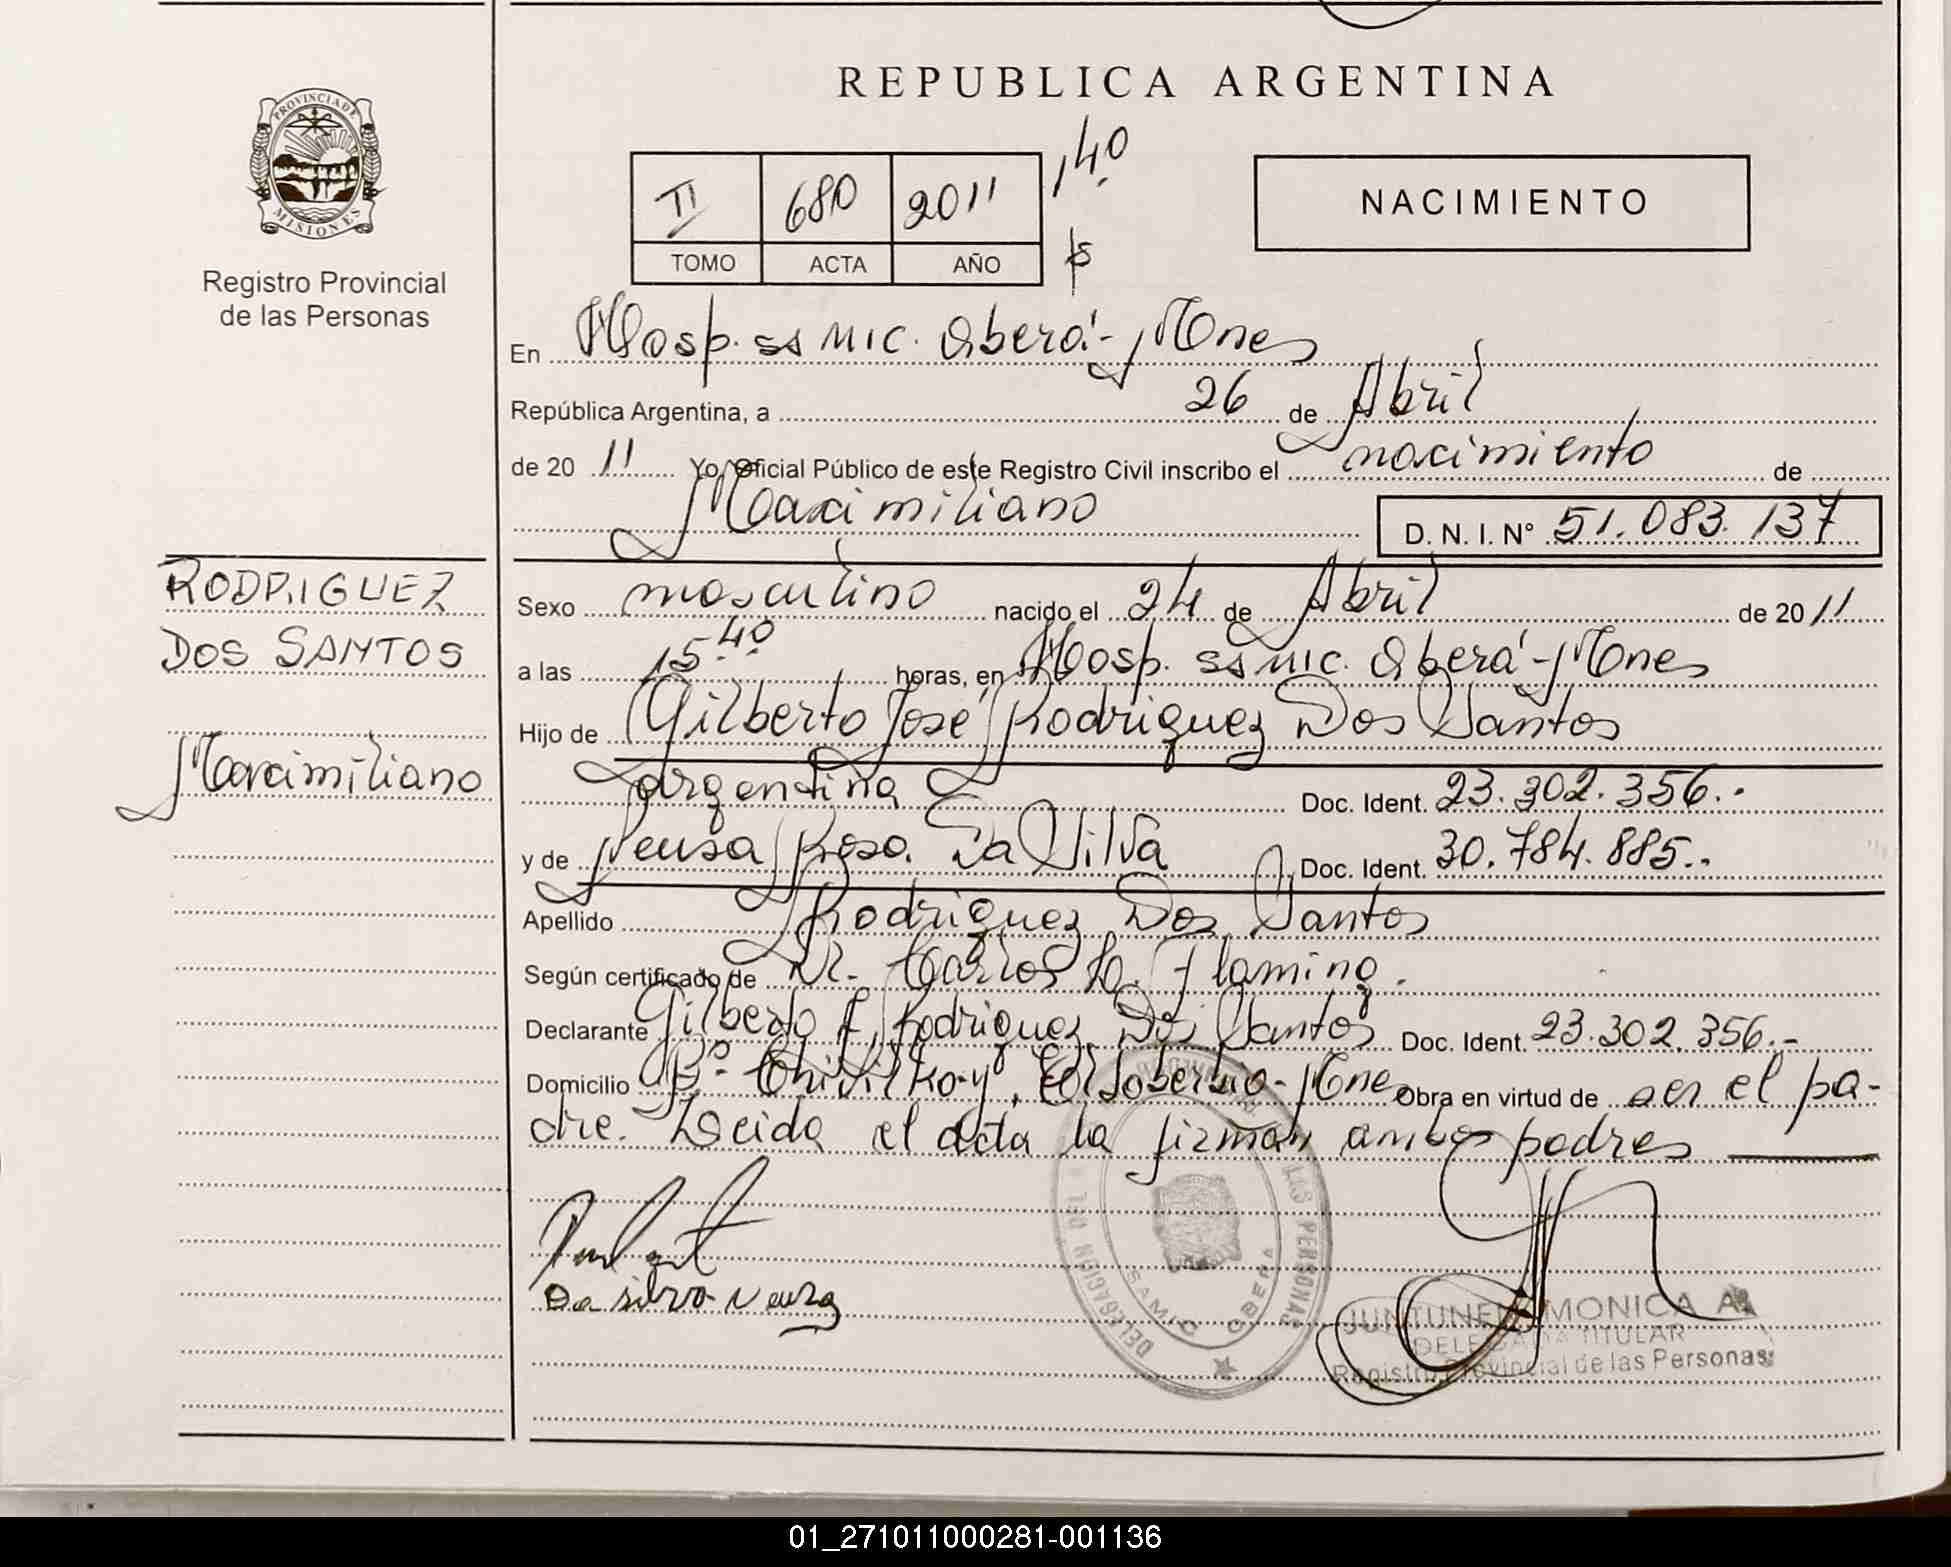 REPUBLICA ARGENTINA
PROVINCIA DE
MISIONES
Registro Provincial
de las Personas
II 680 2011 140
TOMO ACTA AÑO
NACIMIENTO
En Hosp. ss MIC. Oberá - Mnes
República Argentina, a 26 de Abril
de 20 11 Yo, Oficial Público de este Registro Civil inscribo el nacimiento de
Maximiliano D. N. I. N° 51.083.137
RODRIGUEZ
DOS SANTOS
Maximiliano
Sexo masculino nacido el 24 de Abril de 2011
a las 15.40 horas, en Hosp. ss MIC. Oberá - Mnes
Hijo de Gilberto José Rodriguez Dos Santos
argentina Doc. Ident. 23.302.356.-
y de Neusa Rosa Da Silva Doc. Ident. 30.784.885.-
Apellido Rodriguez Dos Santos
Según certificado de Dr. Carlos Flaming.
Declarante Gilberto J. Rodriguez Dos Santos Doc. Ident. 23.302.356.-
Domicilio B° Chivilkoy, El Soberbio - Mnes Obra en virtud de ser el pa-
dre. Leida el acta la firman ambos padres
Da silva Neuza
DELEGACION DEL LAS PERSONAS
SAMIC OBERA
JUNTUNEN MONICA A.
DELEGADA TITULAR
Registro Provincial de las Personas
01_271011000281-001136